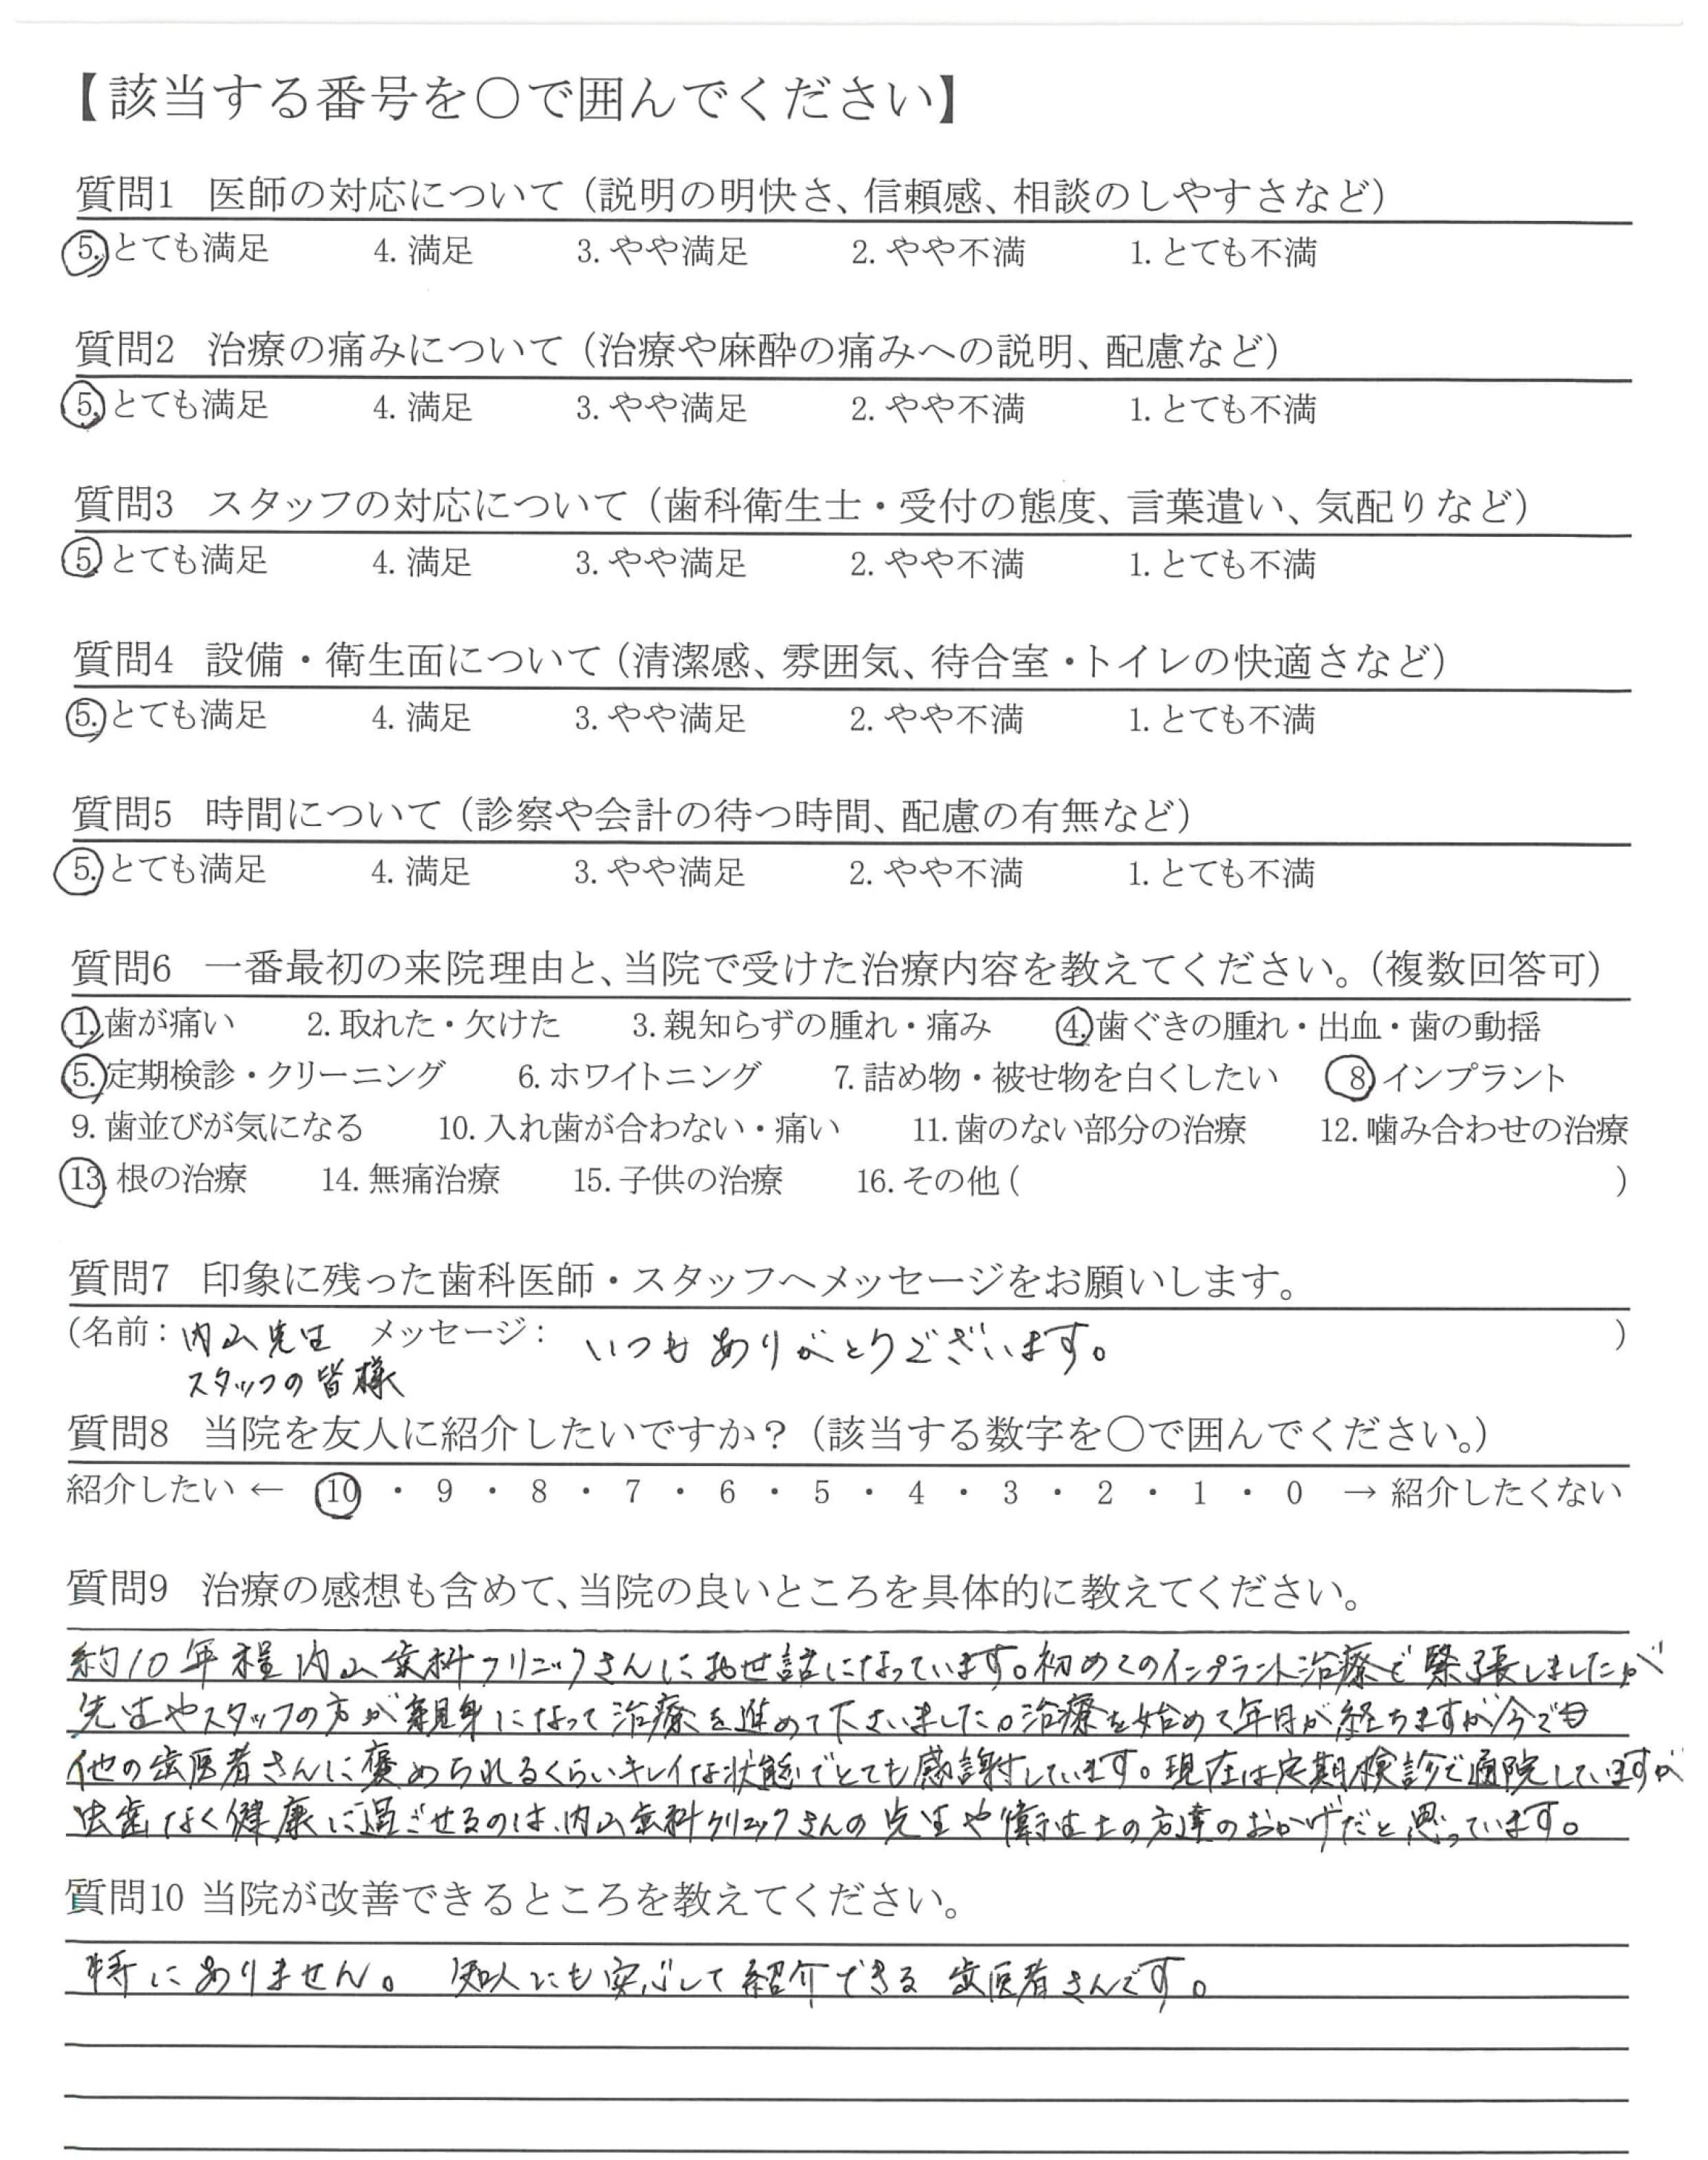 【該当する番号を〇で囲んでください】
質問1 医師の対応について（説明の明快さ、信頼感、相談のしやすさなど）
5. とても満足 4. 満足 3. やや満足 2. やや不満 1. とても不満
質問2 治療の痛みについて（治療や麻酔の痛みへの説明、配慮など）
5. とても満足 4. 満足 3. やや満足 2. やや不満 1. とても不満
質問3 スタッフの対応について（歯科衛生士・受付の態度、言葉遣い、気配りなど）
5. とても満足 4. 満足 3. やや満足 2. やや不満 1. とても不満
質問4 設備・衛生面について（清潔感、雰囲気、待合室・トイレの快適さなど）
5. とても満足 4. 満足 3. やや満足 2. やや不満 1. とても不満
質問5 時間について（診察や会計の待つ時間、配慮の有無など）
5. とても満足 4. 満足 3. やや満足 2. やや不満 1. とても不満
質問6 一番最初の来院理由と、当院で受けた治療内容を教えてください。（複数回答可）
1. 歯が痛い 2. 取れた・欠けた 3. 親知らずの腫れ・痛み 4. 歯ぐきの腫れ・出血・歯の動揺
5. 定期検診・クリーニング 6. ホワイトニング 7. 詰め物・被せ物を白くしたい 8 インプラント
9. 歯並びが気になる 10. 入れ歯が合わない・痛い 11. 歯のない部分の治療 12. 噛み合わせの治療
13. 根の治療 14. 無痛治療 15. 子供の治療 16. その他 ( )
質問7 印象に残った歯科医師・スタッフへメッセージをお願いします。
（名前：内山先生 メッセージ： いつもありがとうございます。 ）
スタッフの皆様
質問8 当院を友人に紹介したいですか？（該当する数字を〇で囲んでください。）
紹介したい ← 10 ・ 9 ・ 8 ・ 7 ・ 6 ・ 5 ・ 4 ・ 3 ・ 2 ・ 1 ・ 0 → 紹介したくない
質問9 治療の感想も含めて、当院の良いところを具体的に教えてください。
約10年程内山歯科クリニックさんにお世話になっています。初めてのインプラント治療で緊張しましたが
先生やスタッフの方が親身になって治療を進めて下さいました。治療を始めて年月が経ちますが今でも
他の歯医者さんに褒められるくらいキレイな状態でとても感謝しています。現在は定期検診で通院していますが
虫歯なく健康に過ごせるのは、内山歯科クリニックさんの先生や衛生士の方達のおかげだと思っています。
質問10 当院が改善できるところを教えてください。
特にありません。 知人にも安心して紹介できる 歯医者さんです。